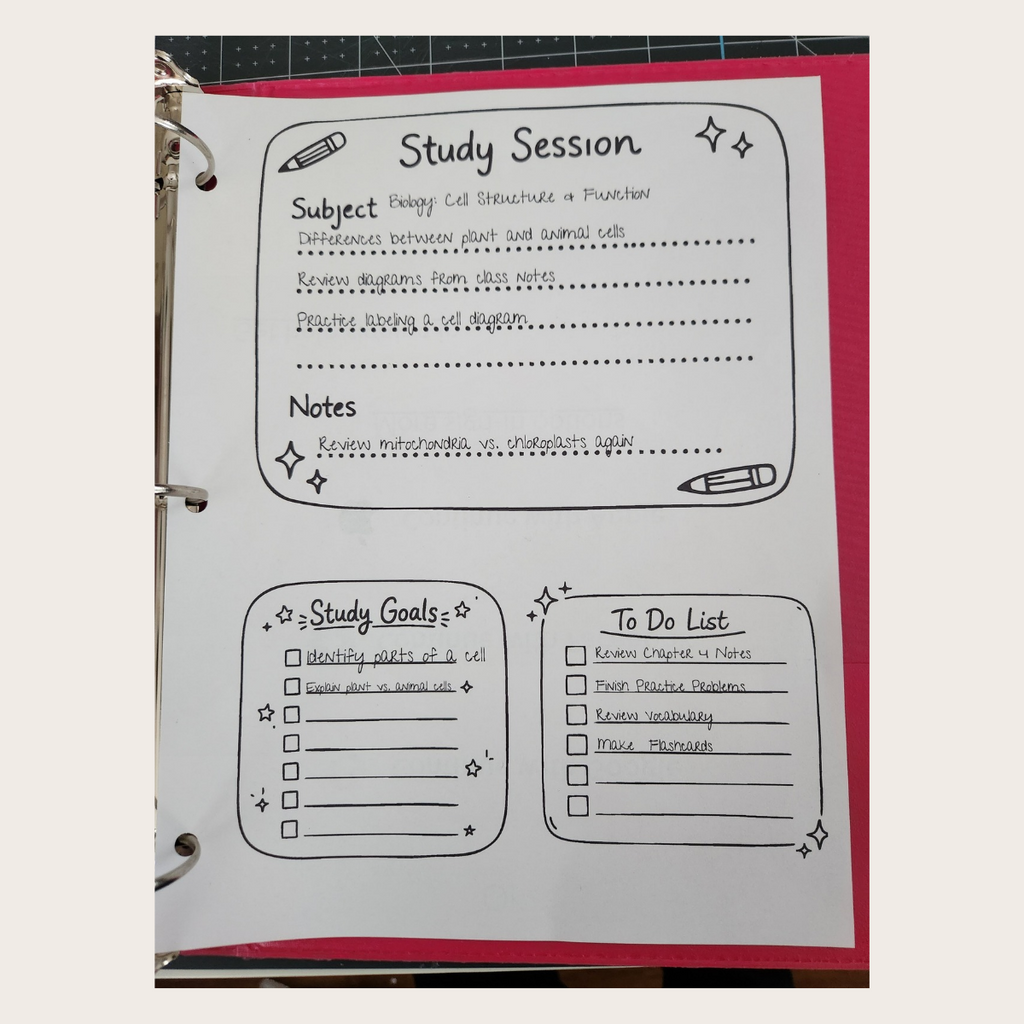 Study Session
Subject Biology: Cell Structure & Function
Differences between plant and animal cells
Review diagrams from class notes
Practice labeling a cell diagram
Notes
Review mitochondria vs. chloroplasts again
Study Goals
Identify parts of a cell
Explain plant vs. animal cells
To Do List
Review Chapter 4 Notes
Finish Practice Problems
Review vocabulary
Make Flashcards